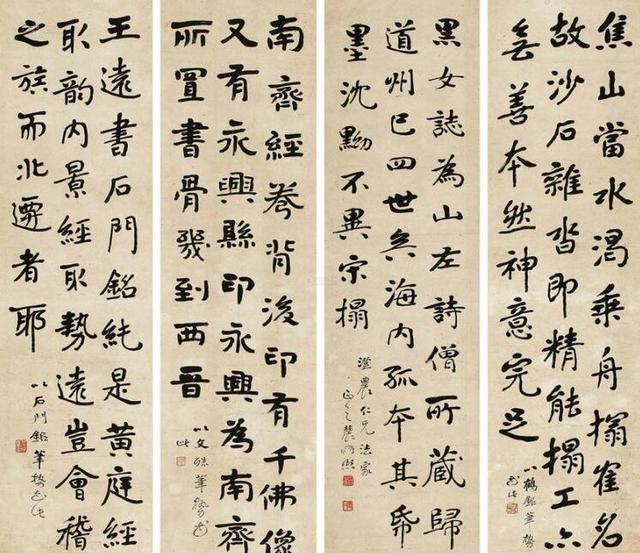 焦山當水渴乘舟搨崔名
故沙石雜沓即精能搨工亦
無善本然神意完足
以鶴銘筆勢
書此
黑女誌為山左詩僧所藏歸
道州已四世矣海内孤本其帋
墨沈黝不異宋搨
仁兄法家
正之農髯熙
南齊經卷背後印有千佛像
又有永興縣印永興為南齊
所置書骨幾到西晉
以文殊筆勢書
此
王遠書石門銘純是黃庭經
取韵内景經取勢遠豈會稽
之族而北遷者耶
以石門銘筆勢書此